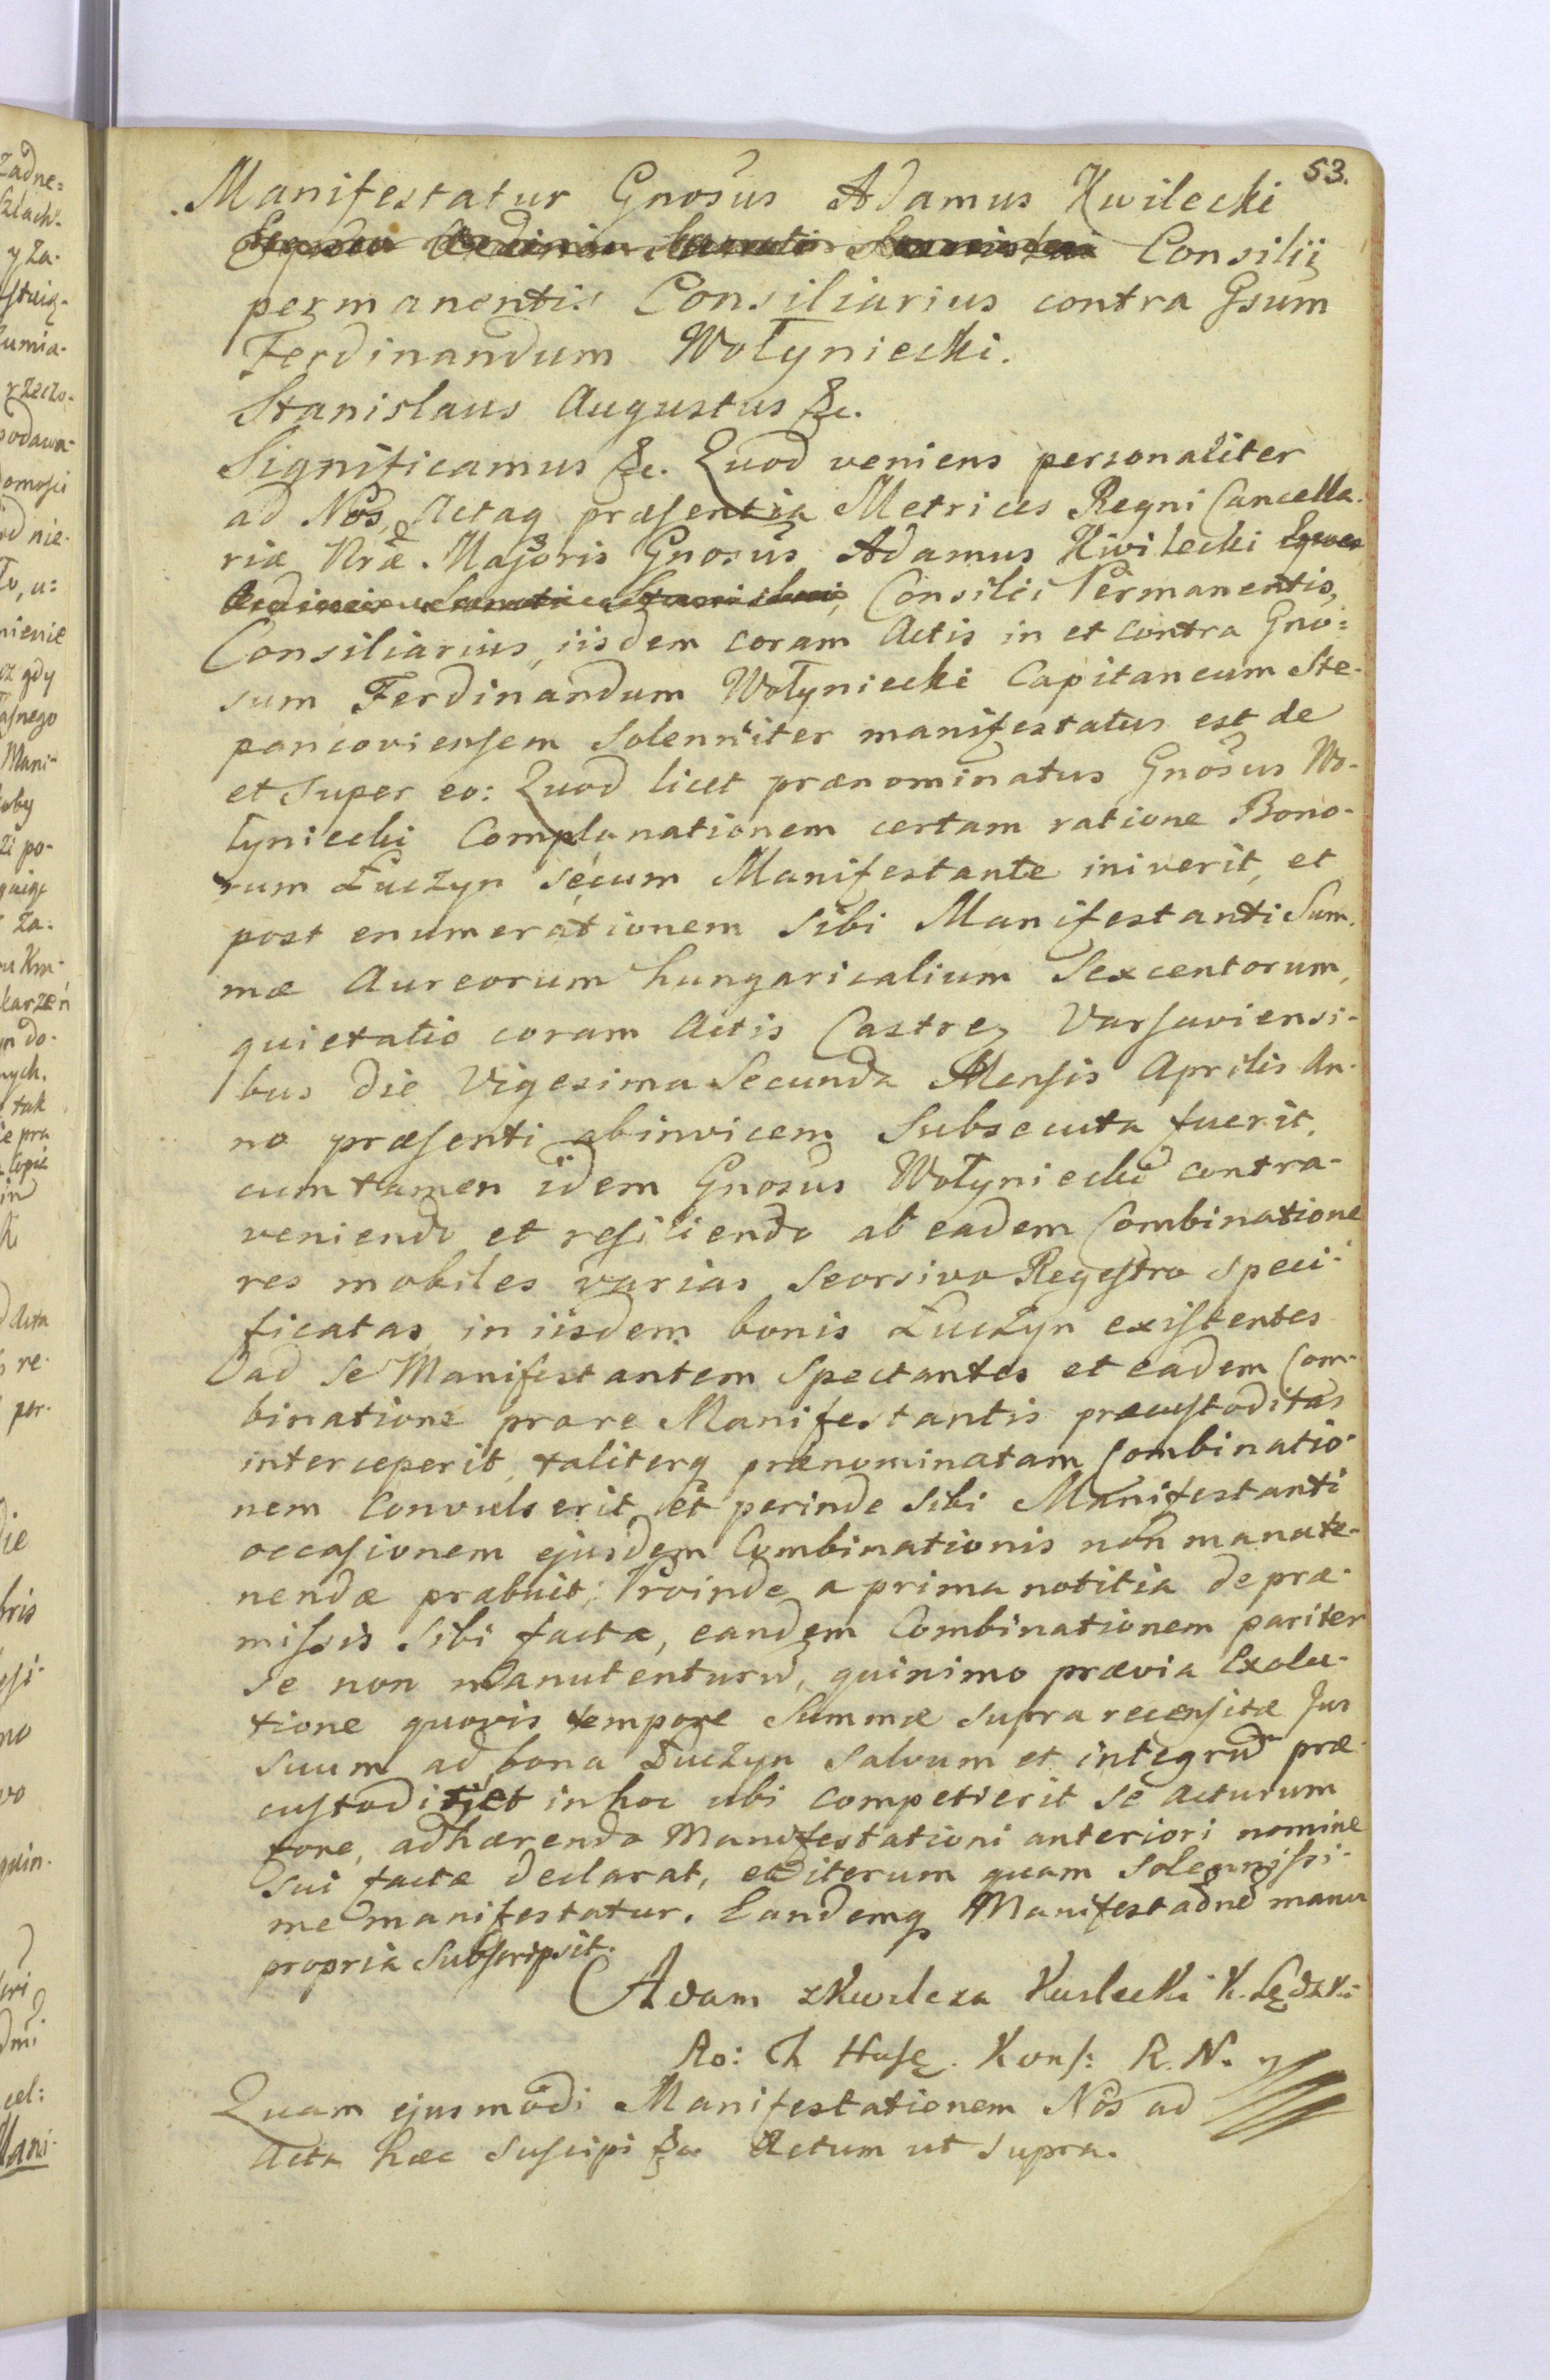 53.
Manifestatur Gnosus Adamus Kwilecki
Consilii
permanentis Consiliarius contra Gsum
Ferdinandum Wołyniecki.
Stanislaus Augustus &c.
Significamus &c. Quod veniens personaliter
ad Nos, Actaq præsentia Metrices Regni Cancella-
riæ Nræ Majoris Gnosus Adamus Kwilecki Eques
Ordinis Sancti Stanislai, Consilii Permanentis,
Consiliarius, iisdem coram Actis in et contra Gno=
sum Ferdinandum Wołyniecki Capitaneum Ste-
pancoviensem Solenniter manifestatus est de
et Super eo: Quod licet prænominatus Gnosus Wo-
łyniecki Complanationem certam ratione Bono-
rum Łuczyn secum Manifestante iniverit, et
post enumerationem Sibi Manifestanti Sum-
mæ Aureorum hungaricalium Sexcentorum,
quietatio coram Actis Castren Varsaviensi-
bus die Vigesima Secunda Mensis Aprilis An-
no præsenti abinvicem Subsecuta fuerit,
cum tamen idem Gnosus Wołyniecki contra-
veniendo et resiliendo ab eadem Combinatione
res mobiles varias Seorsivo Regestro speci-
ficatas in iisdem bonis Łuczyn existentes
ad Se Manifestantem Spectantes et eadem Com-
binatione pro re Manifestantis præcustoditas
interceperit, taliterq prænominatam Combinatio-
nem Convulserit et perinde Sibi Manifestanti
occasionem ejusdem Combinationis non manute-
nendæ præbuit; Proinde a prima notitia de præ-
missis Sibi facta, eandem Combinationem pariter
Se non manutenturu, quinimo prævia Exolu-
tione quovis tempore Summæ supra recensitæ Jus
suum ad bona Łuczyn Salvum et integru præ-
custodit et in hoc ubi Competierit Se Acturum
fore, adhærendo Manifestationi anteriori nomine
Sui factæ declarat, et iterum quam Solennissi-
me manifestatur. Eandemq Manifestaone manu
propria Subscripsit.
Adam z Kwilcza Kwilecki K. Lędzki
Ro: Kons: R. N.
Quam ejusmodi Manifestationem Nos ad
Acta hæc Suscipi &c. Actum ut Supra.